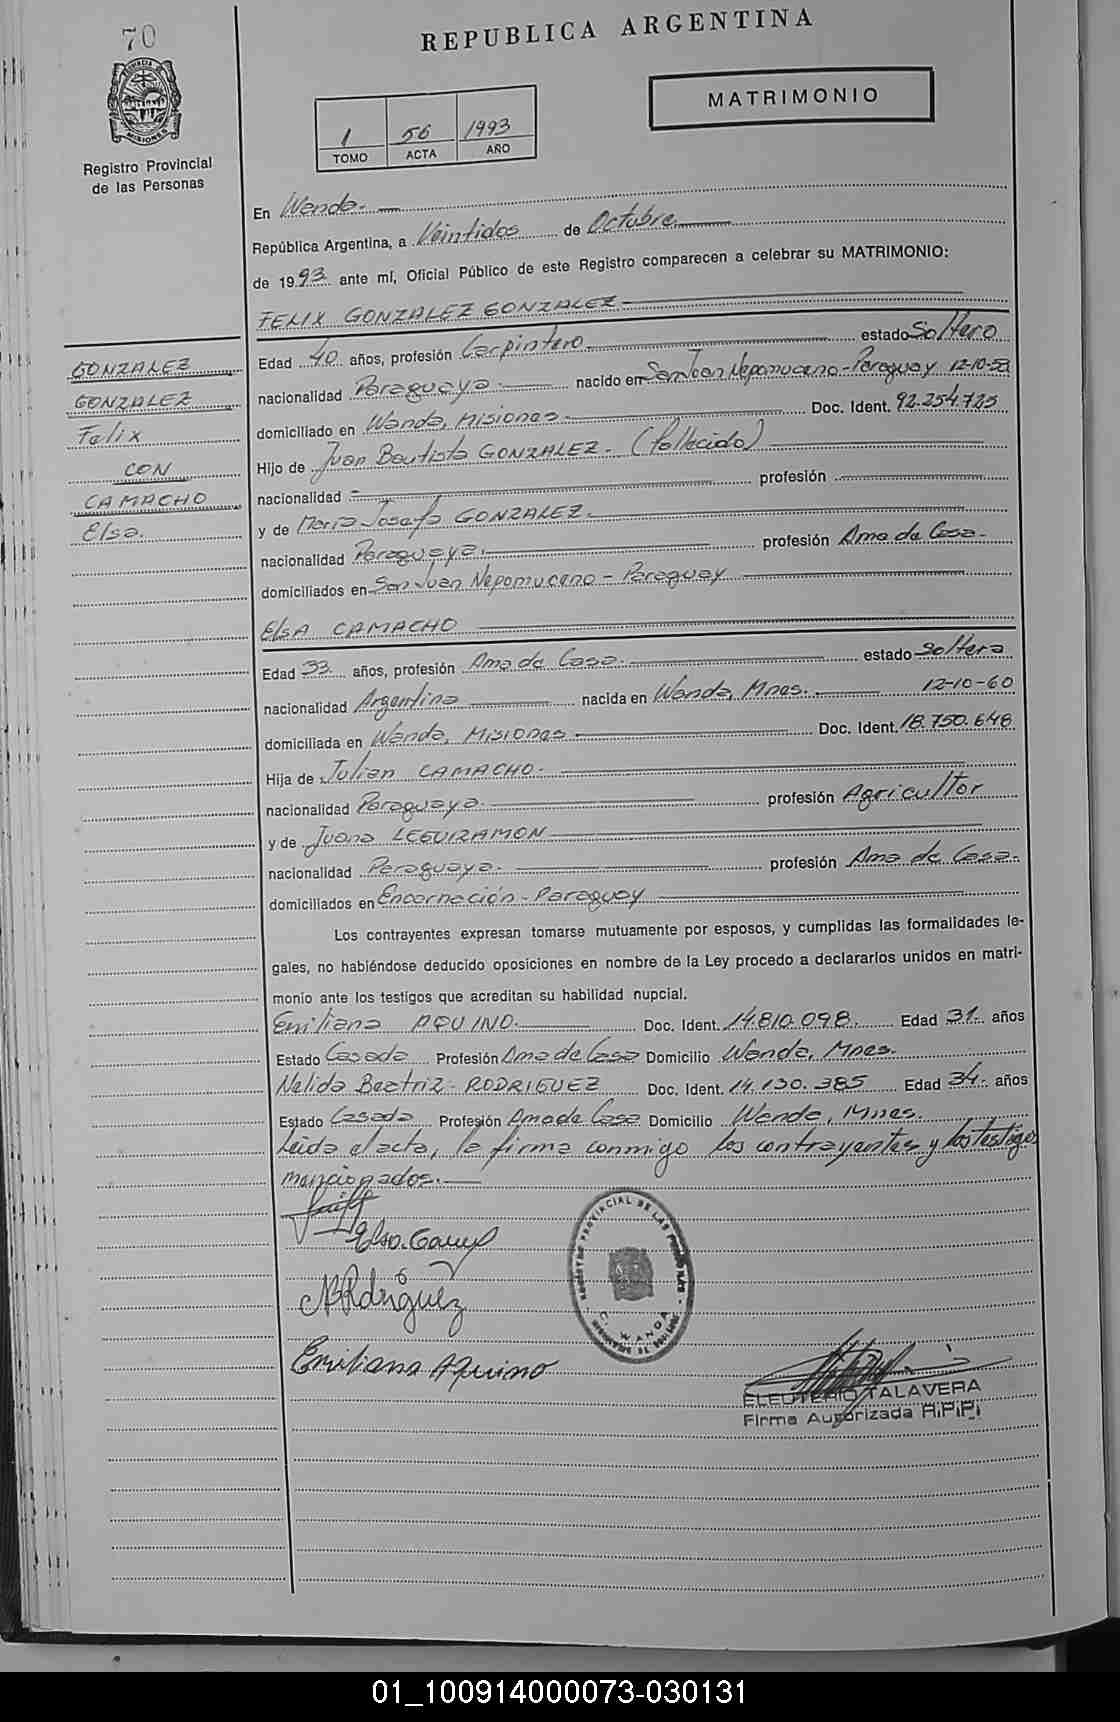 70
REPUBLICA ARGENTINA
MATRIMONIO
1 56 1993
TOMO ACTA AÑO
Registro Provincial
de las Personas
En Wanda.
República Argentina, a Veintidos de Octubre
de 1993 ante mí, Oficial Público de este Registro comparecen a celebrar su MATRIMONIO:
FELIX GONZALEZ GONZALEZ
Edad 40 años, profesión Carpintero. estado Soltero
nacionalidad Paraguaya. nacido en San Juan Nepomuceno-Paraguay 12-10-53
domiciliado en Wanda, Misiones. Doc. Ident. 92.254.725
Hijo de Juan Bautista GONZALEZ. (Fallecido)
nacionalidad - profesión
y de Maria Josefa GONZALEZ.
nacionalidad Paraguaya. profesión Ama de Casa.
domiciliados en San Juan Nepomuceno - Paraguay
ElsA CAMACHO
Edad 33 años, profesión Ama de Casa. estado Soltera
nacionalidad Argentina nacida en Wanda, Mnes. 12-10-60
domiciliada en Wanda, Misiones Doc. Ident. 18.750.648
Hija de Julian CAMACHO.
nacionalidad Paraguaya. profesión Agricultor
y de Juana LEGUIRAMON
nacionalidad Paraguaya. profesión Ama de Casa.
domiciliados en Encarnación-Paraguay
GONZALEZ
GONZALEZ
Felix
CON
CAMACHO
Elsa.
Los contrayentes expresan tomarse mutuamente por esposos, y cumplidas las formalidades le-
gales, no habiéndose deducido oposiciones en nombre de la Ley procedo a declararlos unidos en matri-
monio ante los testigos que acreditan su habilidad nupcial.
Emiliana AQUINO. Doc. Ident. 14.810.098. Edad 31 años
Estado Casada Profesión Ama de Casa Domicilio Wanda, Mnes.
Nelida Beatriz RODRIGUEZ Doc. Ident. 14.130.385 Edad 34 años
Estado Casada Profesión Ama de Casa Domicilio Wanda, Mnes.
Leida el acta, la firma conmigo los contrayentes y los testigos
mencionados.
Elsa. Camach
NBRodriguez
Emiliana Aquino
REGISTRO PROVINCIAL DE LAS PERSONAS
WANDA
ELEUTERIO TALAVERA
Firma Autorizada R.P.P.
01_100914000073-030131